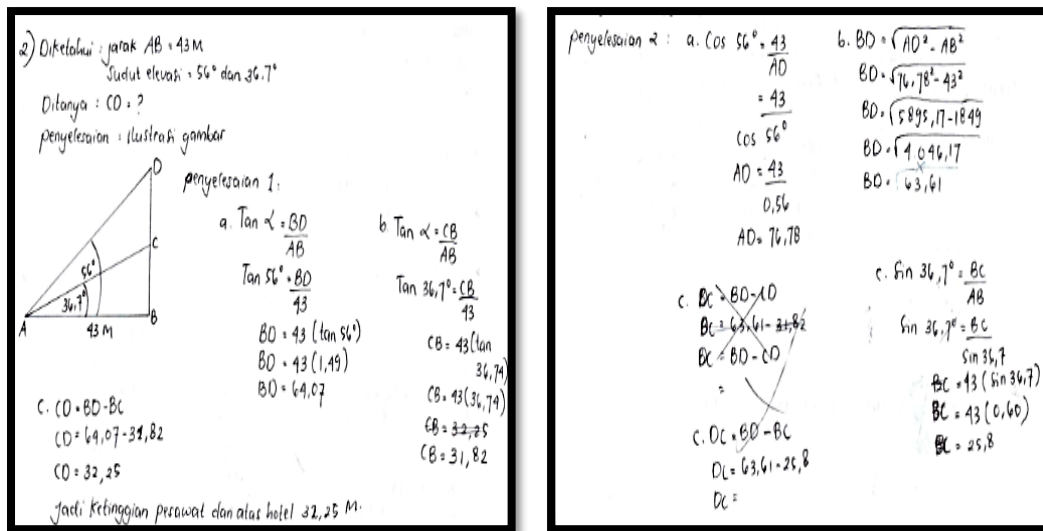 2) Diketahui : jarak AB = 43 M
Sudut elevasi = 56° dan 36.7°
Ditanya : CD = ?
penyelesaian : ilustrasi gambar
D
C
56°
36,7°
A
43 M
B
penyelesaian 1:
a. Tan α = BD
AB
Tan 56° = BD
43
BD = 43 (tan 56°)
BD = 43 (1,49)
BD = 64,07
b. Tan α = CB
AB
Tan 36,7° = CB
43
CB = 43 (tan
36,74)
CB = 43 (36,74)
CB = 32,25
CB = 31,82
C. CD = BD - BC
CD = 64,07 - 31,82
CD = 32,25
Jadi ketinggian pesawat dan atas hotel 32,25 M.
penyelesaian 2 : a. Cos 56° = 43
AD
= 43
cos 56°
AD = 43
0,56
AD = 76,78
b. BD = √AD² - AB²
BD = √76,78² - 43²
BD = √5895,17 - 1849
BD = √4.046,17
BD = 63,61
c. BC = BD - CD
BC = 63,61 - 31,82
BC = BD - CD
=
c. DC = BD - BC
DC = 63,61 - 25,8
DC =
c. Sin 36,7° = BC
AB
Sin 36,7° = BC
Sin 36,7
BC = 43 (sin 36,7)
BC = 43 (0,60)
BC = 25,8